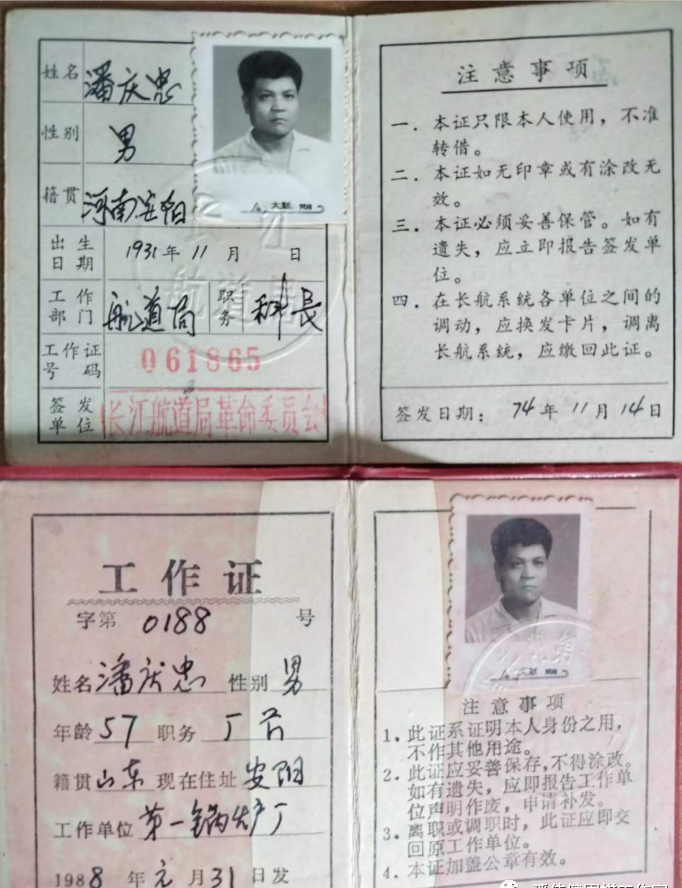 姓名 潘庆忠
性别 男
籍贯 河南安阳
出生日期 1931年11月 日
工作部门 航道局 职务 科长
工作证号码 061865
签发单位 长江航道局革命委员会
注意事项
一．本证只限本人使用，不准
转借。
二．本证如无印章或有涂改无
效。
三．本证必须妥善保管。如有
遗失，应立即报告签发单
位。
四．在长航系统各单位之间的
调动，应换发卡片，调离
长航系统，应缴回此证。
签发日期：74年11月14日
工作证
字第 0188 号
姓名 潘庆忠 性别 男
年龄 57 职务
籍贯 山东 现在住址 安阳
工作单位 第一锅炉厂
1988年元月31日发
注意事项
1、此证系证明本人身份之用，
不作其他用途。
2、此证应妥善保存，不得涂改。
如有遗失，应即报告工作单
位声明作废，申请补发。
3、离职或调职时，此证应即交
回原工作单位。
4、本证加盖公章有效。